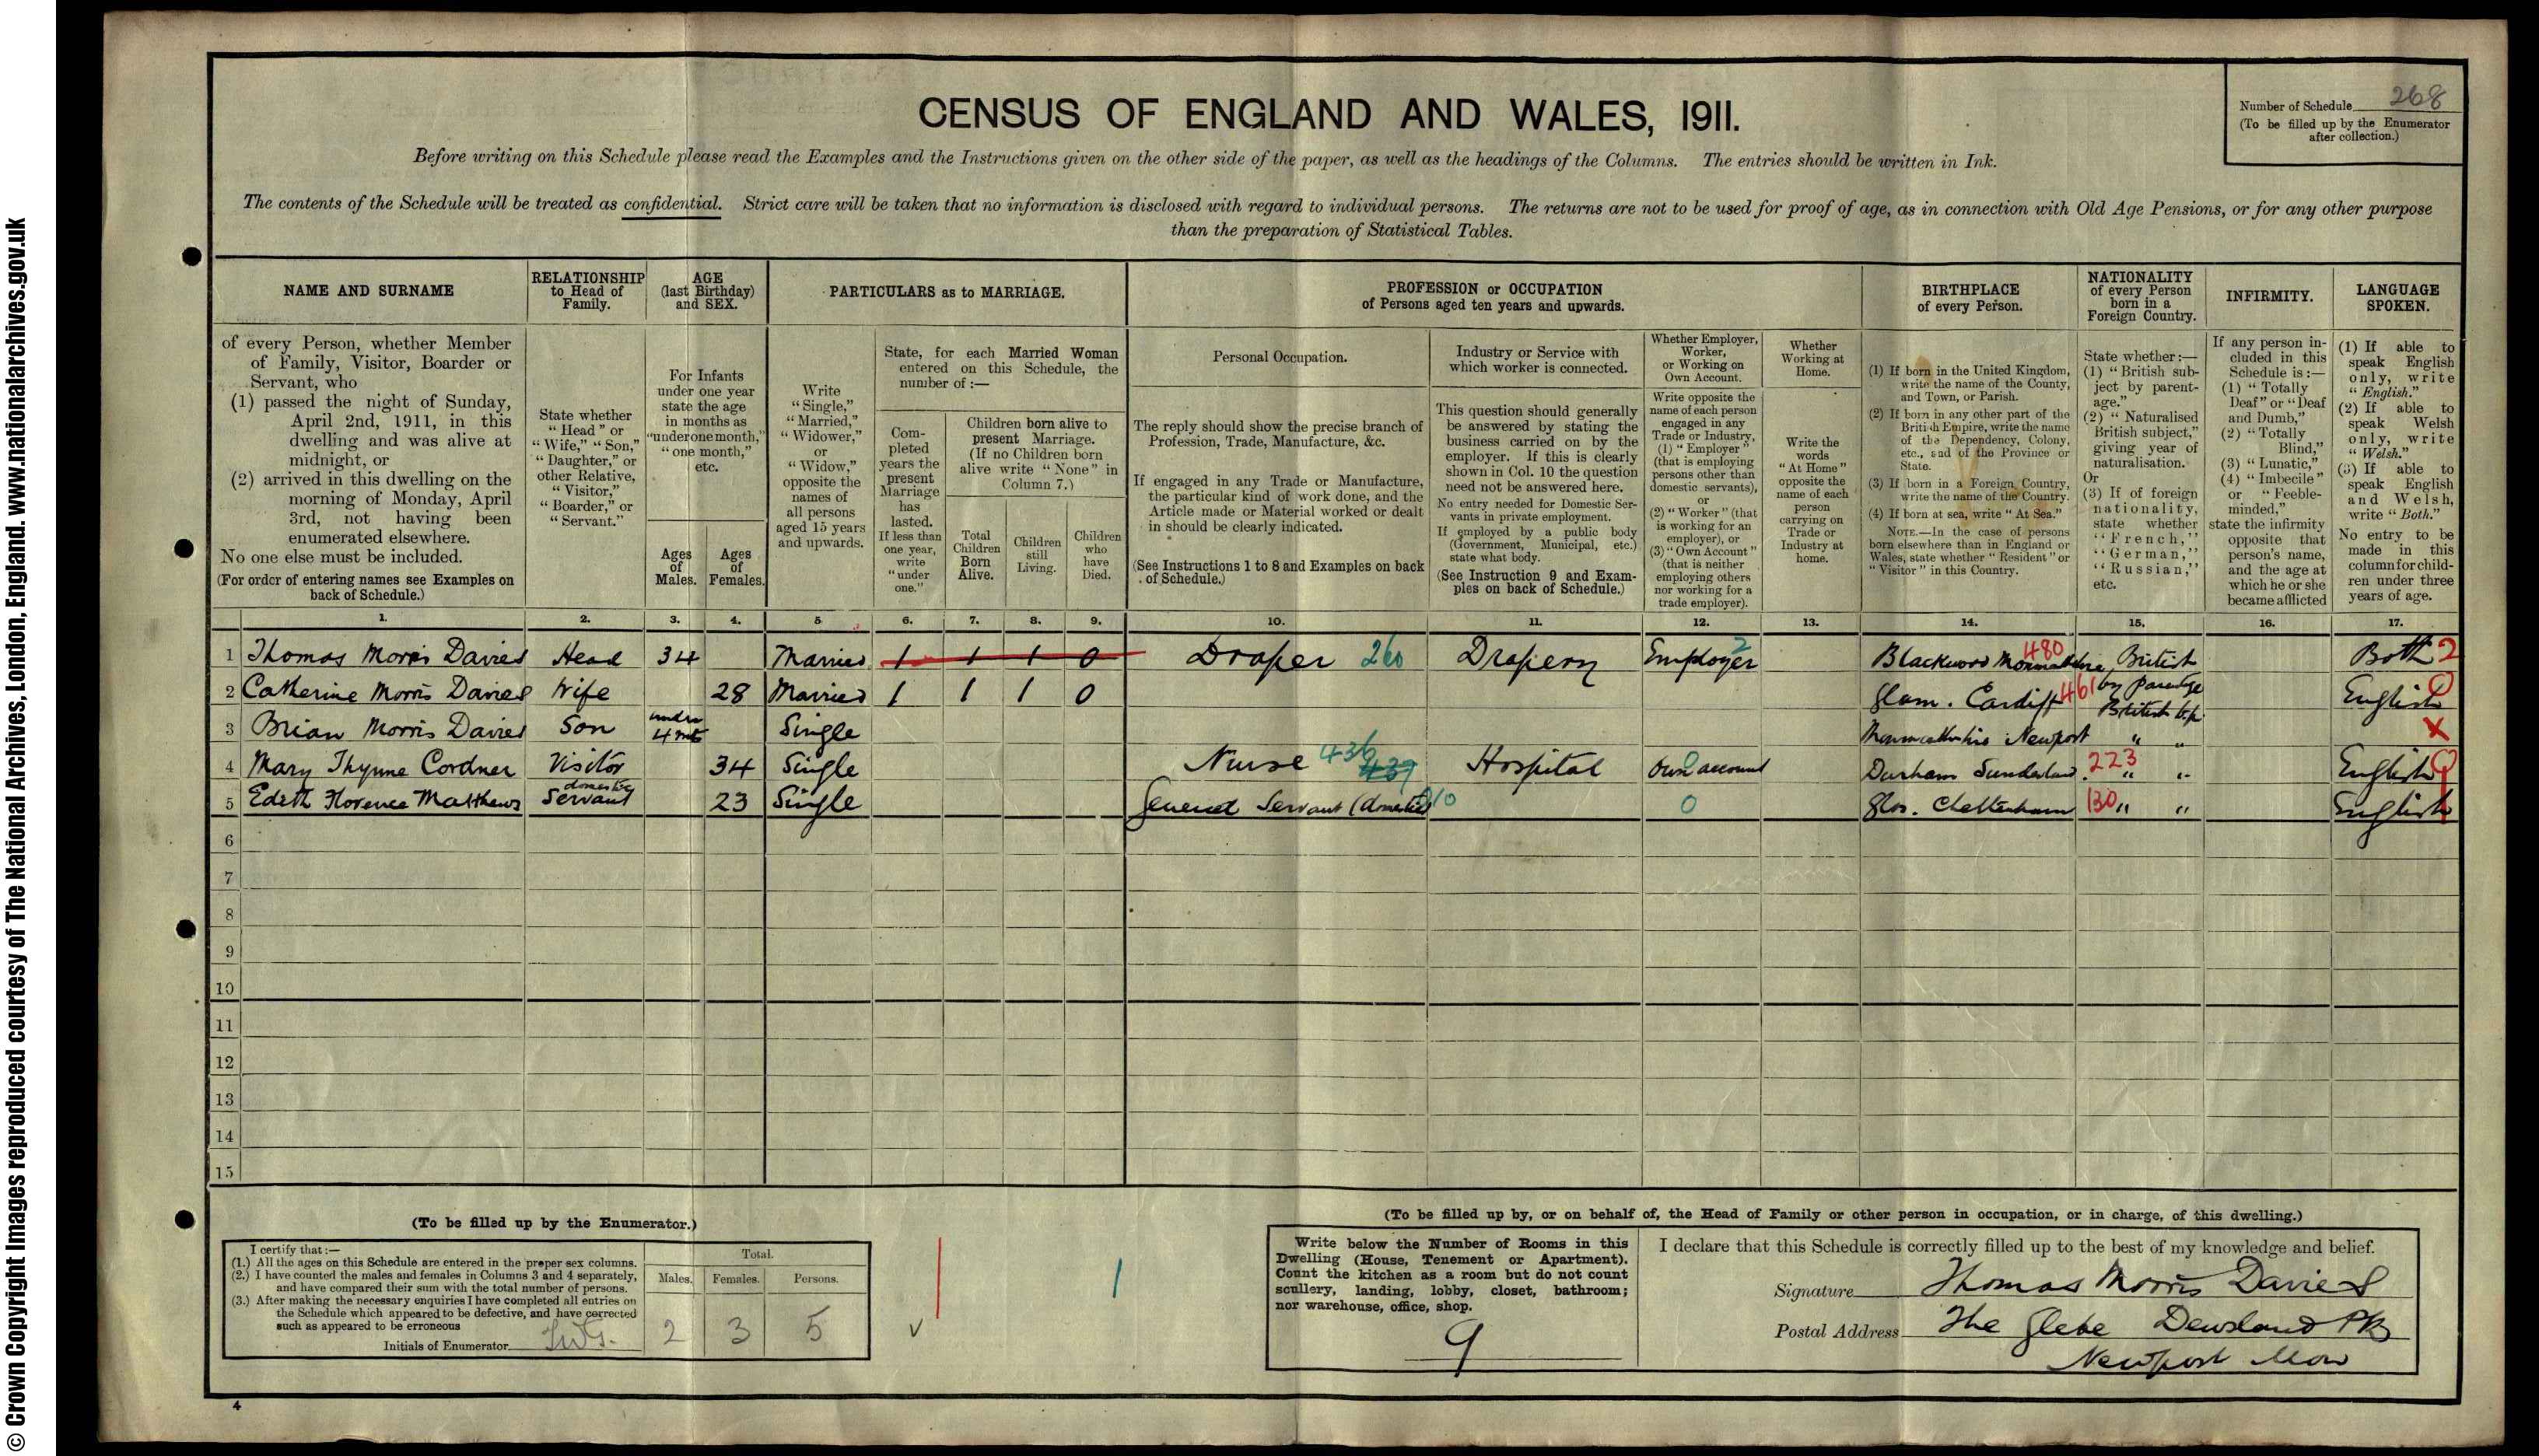 © Crown Copyright Images reproduced courtesy of The National Archives, London, England. www.nationalarchives.gov.uk
CENSUS OF ENGLAND AND WALES, 1911.
Number of Schedule 268
(To be filled up by the Enumerator
after collection.)
Before writing on this Schedule please read the Examples and the Instructions given on the other side of the paper, as well as the headings of the Columns. The entries should be written in Ink.
The contents of the Schedule will be treated as confidential. Strict care will be taken that no information is disclosed with regard to individual persons. The returns are not to be used for proof of age, as in connection with Old Age Pensions, or for any other purpose
than the preparation of Statistical Tables.
NAME AND SURNAME
of every Person, whether Member
of Family, Visitor, Boarder or
Servant, who
(1) passed the night of Sunday,
April 2nd, 1911, in this
dwelling and was alive at
midnight, or
(2) arrived in this dwelling on the
morning of Monday, April
3rd, not having been
enumerated elsewhere.
No one else must be included.
(For order of entering names see Examples on
back of Schedule.)
RELATIONSHIP
to Head of
Family.
State whether
"Head" or
"Wife," "Son,"
"Daughter," or
other Relative,
"Visitor,"
"Boarder," or
"Servant."
AGE
(last Birthday)
and SEX.
For Infants
under one year
state the age
in months as
"under one month,"
"one month,"
etc.
Ages
of
Males.
Ages
of
Females.
PARTICULARS as to MARRIAGE.
Write
"Single,"
"Married,"
"Widower,"
or
"Widow,"
opposite the
names of
all persons
aged 15 years
and upwards.
State, for each Married Woman
entered on this Schedule, the
number of :—
Com-
pleted
years the
present
Marriage
has
lasted.
If less than
one year,
write
"under
one."
Children born alive to
present Marriage.
(If no Children born
alive write "None" in
Column 7.)
Total
Children
Born
Alive.
Children
still
Living.
Children
who
have
Died.
PROFESSION or OCCUPATION
of Persons aged ten years and upwards.
Personal Occupation.
The reply should show the precise branch of
Profession, Trade, Manufacture, &c.
If engaged in any Trade or Manufacture,
the particular kind of work done, and the
Article made or Material worked or dealt
in should be clearly indicated.
(See Instructions 1 to 8 and Examples on back
of Schedule.)
Industry or Service with
which worker is connected.
This question should generally
be answered by stating the
business carried on by the
employer. If this is clearly
shown in Col. 10 the question
need not be answered here.
No entry needed for Domestic Ser-
vants in private employment.
If employed by a public body
(Government, Municipal, etc.)
state what body.
(See Instruction 9 and Exam-
ples on back of Schedule.)
Whether Employer,
Worker,
or Working on
Own Account.
Write opposite the
name of each person
engaged in any
Trade or Industry,
(1) "Employer"
(that is employing
persons other than
domestic servants),
or
(2) "Worker" (that
is working for an
employer), or
(3) "Own Account"
(that is neither
employing others
nor working for a
trade employer).
Whether
Working at
Home.
Write the
words
"At Home"
opposite the
name of each
person
carrying on
Trade or
Industry at
home.
BIRTHPLACE
of every Person.
(1) If born in the United Kingdom,
write the name of the County,
and Town, or Parish.
(2) If born in any other part of the
British Empire, write the name
of the Dependency, Colony,
etc., and of the Province or
State.
(3) If born in a Foreign Country,
write the name of the Country.
(4) If born at sea, write "At Sea."
NOTE.—In the case of persons
born elsewhere than in England or
Wales, state whether "Resident" or
"Visitor" in this Country.
NATIONALITY
of every Person
born in a
Foreign Country.
State whether :—
(1) "British sub-
ject by parent-
age."
(2) "Naturalised
British subject,"
giving year of
naturalisation.
Or
(3) If of foreign
nationality,
state whether
"French,"
"German,"
"Russian,"
etc.
INFIRMITY.
If any person in-
cluded in this
Schedule is :—
(1) "Totally
Deaf" or "Deaf
and Dumb,"
(2) "Totally
Blind,"
(3) "Lunatic,"
(4) "Imbecile"
or "Feeble-
minded,"
state the infirmity
opposite that
person's name,
and the age at
which he or she
became afflicted
LANGUAGE
SPOKEN.
(1) If able to
speak English
only, write
"English."
(2) If able to
speak Welsh
only, write
"Welsh."
(3) If able to
speak English
and Welsh,
write "Both."
No entry to be
made in this
column for child-
ren under three
years of age.
1. 2. 3. 4. 5 6. 7. 8. 9. 10. 11. 12. 13. 14. 15. 16. 17.
1 Thomas Morris Davies Head 34 Married 1 1 1 0 Draper 260 Drapery Employer 2 Blackwood Monmouthshire 480 British Both 2
by parentage
2 Catherine Morris Davies Wife 28 Married 1 1 1 0 Glam. Cardiff 461 British b.p. English
3 Brian Morris Davies Son under 4 mts Single Monmouthshire Newport " " X
4 Mary Thynne Cordner Visitor 34 Single Nurse 436 439 Hospital Own account Durham Sunderland 223 " " English
5 Edith Florence Matthews domestic Servant 23 Single General Servant (domestic) 0 Glos. Cheltenham 130 " " English
6
7
8
9
10
11
12
13
14
15
(To be filled up by the Enumerator.)
I certify that :—
(1.) All the ages on this Schedule are entered in the proper sex columns.
(2.) I have counted the males and females in Columns 3 and 4 separately,
and have compared their sum with the total number of persons.
(3.) After making the necessary enquiries I have completed all entries on
the Schedule which appeared to be defective, and have corrected
such as appeared to be erroneous
Initials of Enumerator
Total.
Males. Females. Persons.
2 3 5
(To be filled up by, or on behalf of, the Head of Family or other person in occupation, or in charge, of this dwelling.)
Write below the Number of Rooms in this
Dwelling (House, Tenement or Apartment).
Count the kitchen as a room but do not count
scullery, landing, lobby, closet, bathroom;
nor warehouse, office, shop.
9
I declare that this Schedule is correctly filled up to the best of my knowledge and belief.
Signature Thomas Morris Davies
Postal Address The Glebe Dewsland Pk
Newport Mon
4